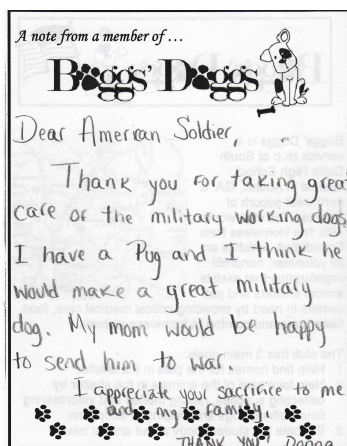 A note from a member of ...
Boggs' Doggs
Dear American Soldier,
Thank you for taking great
care or the military working dogs.
I have a Pug and I think he
would make a great military
dog. My mom would be happy
to send him to war.
I appreciate your sacrifice to me
and my family,
THANK YOU! Donna